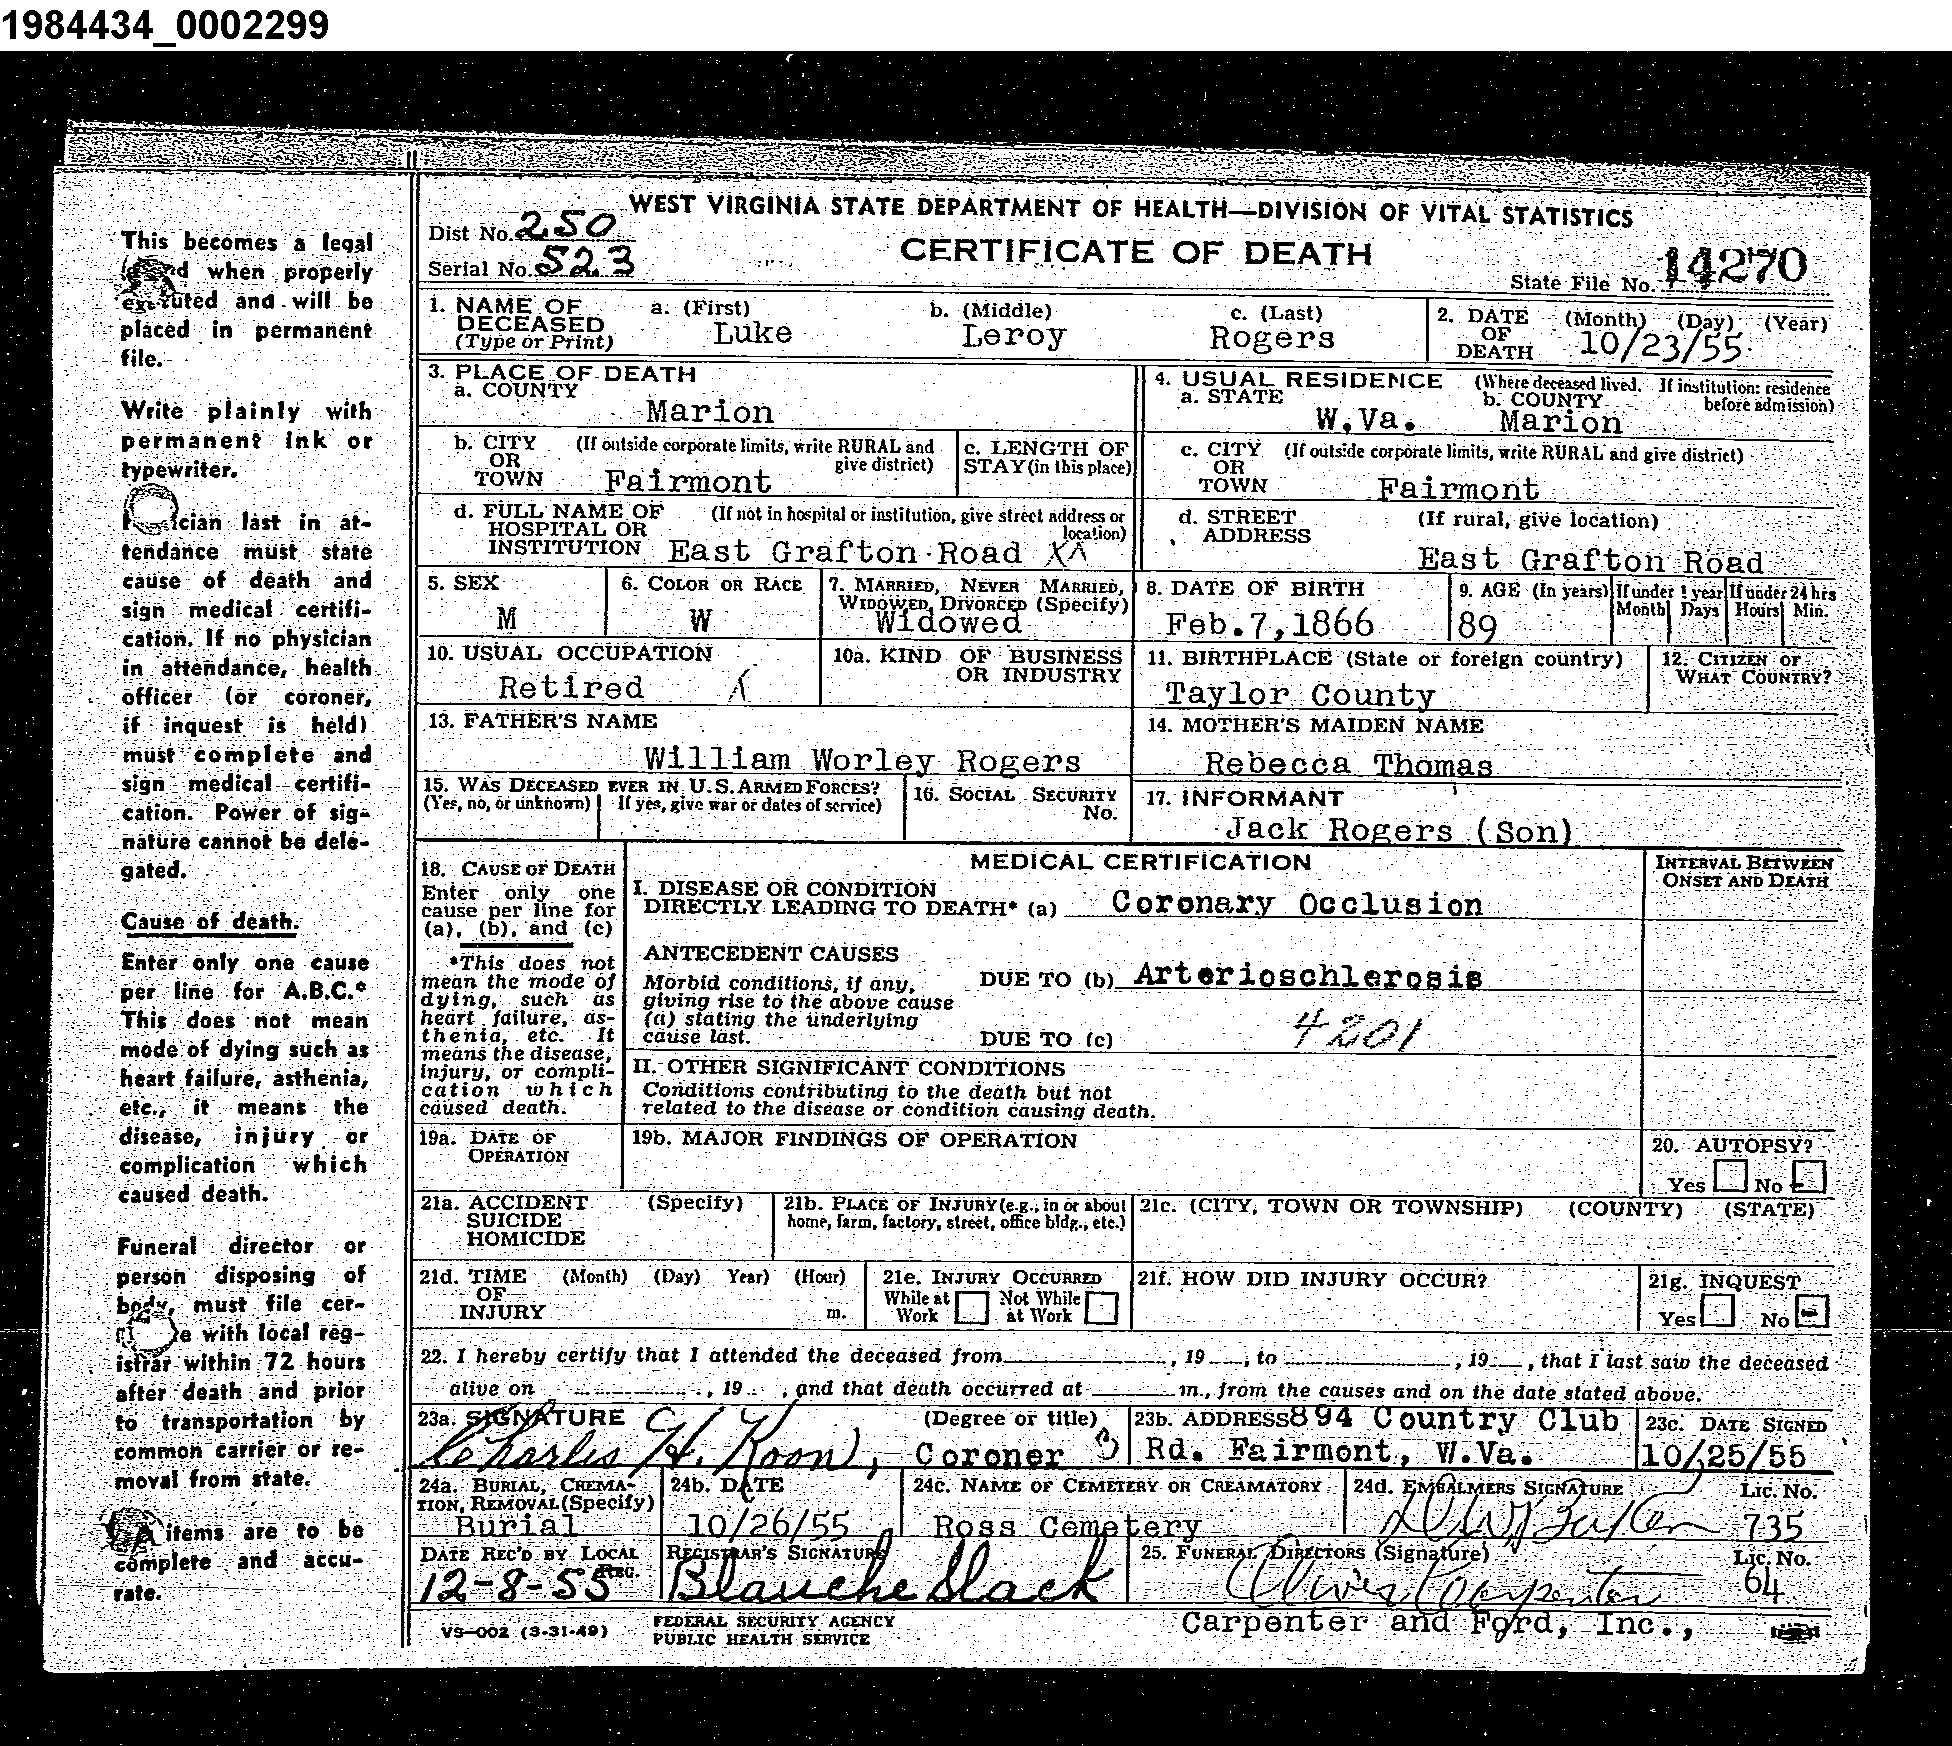 1984434_0002299
WEST VIRGINIA STATE DEPARTMENT OF HEALTH—DIVISION OF VITAL STATISTICS
Dist No. 250
CERTIFICATE OF DEATH
Serial No. 523
State File No. 14270
1. NAME OF DECEASED (Type or Print) a. (First) Luke b. (Middle) Leroy c. (Last) Rogers
2. DATE OF DEATH (Month) (Day) (Year) 10/23/55
3. PLACE OF DEATH
a. COUNTY Marion
4. USUAL RESIDENCE (Where deceased lived. If institution: residence before admission)
a. STATE W.Va. b. COUNTY Marion
b. CITY OR TOWN (If outside corporate limits, write RURAL and give district) Fairmont
c. LENGTH OF STAY (in this place)
c. CITY OR TOWN (If outside corporate limits, write RURAL and give district) Fairmont
d. FULL NAME OF HOSPITAL OR INSTITUTION (If not in hospital or institution, give street address or location) East Grafton Road
d. STREET ADDRESS (If rural, give location) East Grafton Road
5. SEX M
6. COLOR OR RACE W
7. MARRIED, NEVER MARRIED, WIDOWED, DIVORCED (Specify) Widowed
8. DATE OF BIRTH Feb.7,1866
9. AGE (In years) 89 If under 1 year Month Days If under 24 hrs Hours Min.
10. USUAL OCCUPATION Retired
10a. KIND OF BUSINESS OR INDUSTRY
11. BIRTHPLACE (State or foreign country) Taylor County
12. CITIZEN OF WHAT COUNTRY?
13. FATHER'S NAME William Worley Rogers
14. MOTHER'S MAIDEN NAME Rebecca Thomas
15. WAS DECEASED EVER IN U.S. ARMED FORCES? (Yes, no, or unknown) If yes, give war or dates of service)
16. SOCIAL SECURITY No.
17. INFORMANT Jack Rogers (Son)
18. CAUSE OF DEATH
Enter only one cause per line for (a), (b), and (c)
*This does not mean the mode of dying, such as heart failure, asthenia, etc. It means the disease, injury, or complication which caused death.
MEDICAL CERTIFICATION
INTERVAL BETWEEN ONSET AND DEATH
I. DISEASE OR CONDITION DIRECTLY LEADING TO DEATH* (a) Coronary Occlusion
ANTECEDENT CAUSES
Morbid conditions, if any, giving rise to the above cause (a) stating the underlying cause last.
DUE TO (b) Arterioschlerosis
DUE TO (c) 4201
II. OTHER SIGNIFICANT CONDITIONS
Conditions contributing to the death but not related to the disease or condition causing death.
19a. DATE OF OPERATION
19b. MAJOR FINDINGS OF OPERATION
20. AUTOPSY? Yes No
21a. ACCIDENT SUICIDE HOMICIDE (Specify)
21b. PLACE OF INJURY (e.g., in or about home, farm, factory, street, office bldg., etc.)
21c. (CITY, TOWN OR TOWNSHIP) (COUNTY) (STATE)
21d. TIME OF INJURY (Month) (Day) Year) (Hour) m.
21e. INJURY OCCURRED While at Work Not While at Work
21f. HOW DID INJURY OCCUR?
21g. INQUEST Yes No
22. I hereby certify that I attended the deceased from , 19 , to , 19 , that I last saw the deceased
alive on , 19 , and that death occurred at m., from the causes and on the date stated above.
23a. SIGNATURE Charles H. Koon, (Degree or title) Coroner
23b. ADDRESS 894 Country Club Rd. Fairmont, W.Va.
23c. DATE SIGNED 10/25/55
24a. BURIAL, CREMATION, REMOVAL (Specify) Burial
24b. DATE 10/26/55
24c. NAME OF CEMETERY OR CREAMATORY Ross Cemetery
24d. EMBALMERS SIGNATURE Lic. No. 735
DATE REC'D BY LOCAL REG. 12-8-55
REGISTRAR'S SIGNATURE Blanche Slack
25. FUNERAL DIRECTORS (Signature) Oliver Carpenter Lic. No. 64
Carpenter and Ford, Inc.,
VS-002 (3-31-49)
FEDERAL SECURITY AGENCY
PUBLIC HEALTH SERVICE
This becomes a legal
when properly
executed and will be
placed in permanent
file.
Write plainly with
permanent ink or
typewriter.
last in at-
tendance must state
cause of death and
sign medical certifi-
cation. If no physician
in attendance, health
officer (or coroner,
if inquest is held)
must complete and
sign medical certifi-
cation. Power of sig-
nature cannot be dele-
gated.
Cause of death.
Enter only one cause
per line for A.B.C.*
This does not mean
mode of dying such as
heart failure, asthenia,
etc., it means the
disease, injury or
complication which
caused death.
Funeral director or
person disposing of
body, must file cer-
with local reg-
istrar within 72 hours
after death and prior
to transportation by
common carrier or re-
moval from state.
items are to be
complete and accu-
rate.